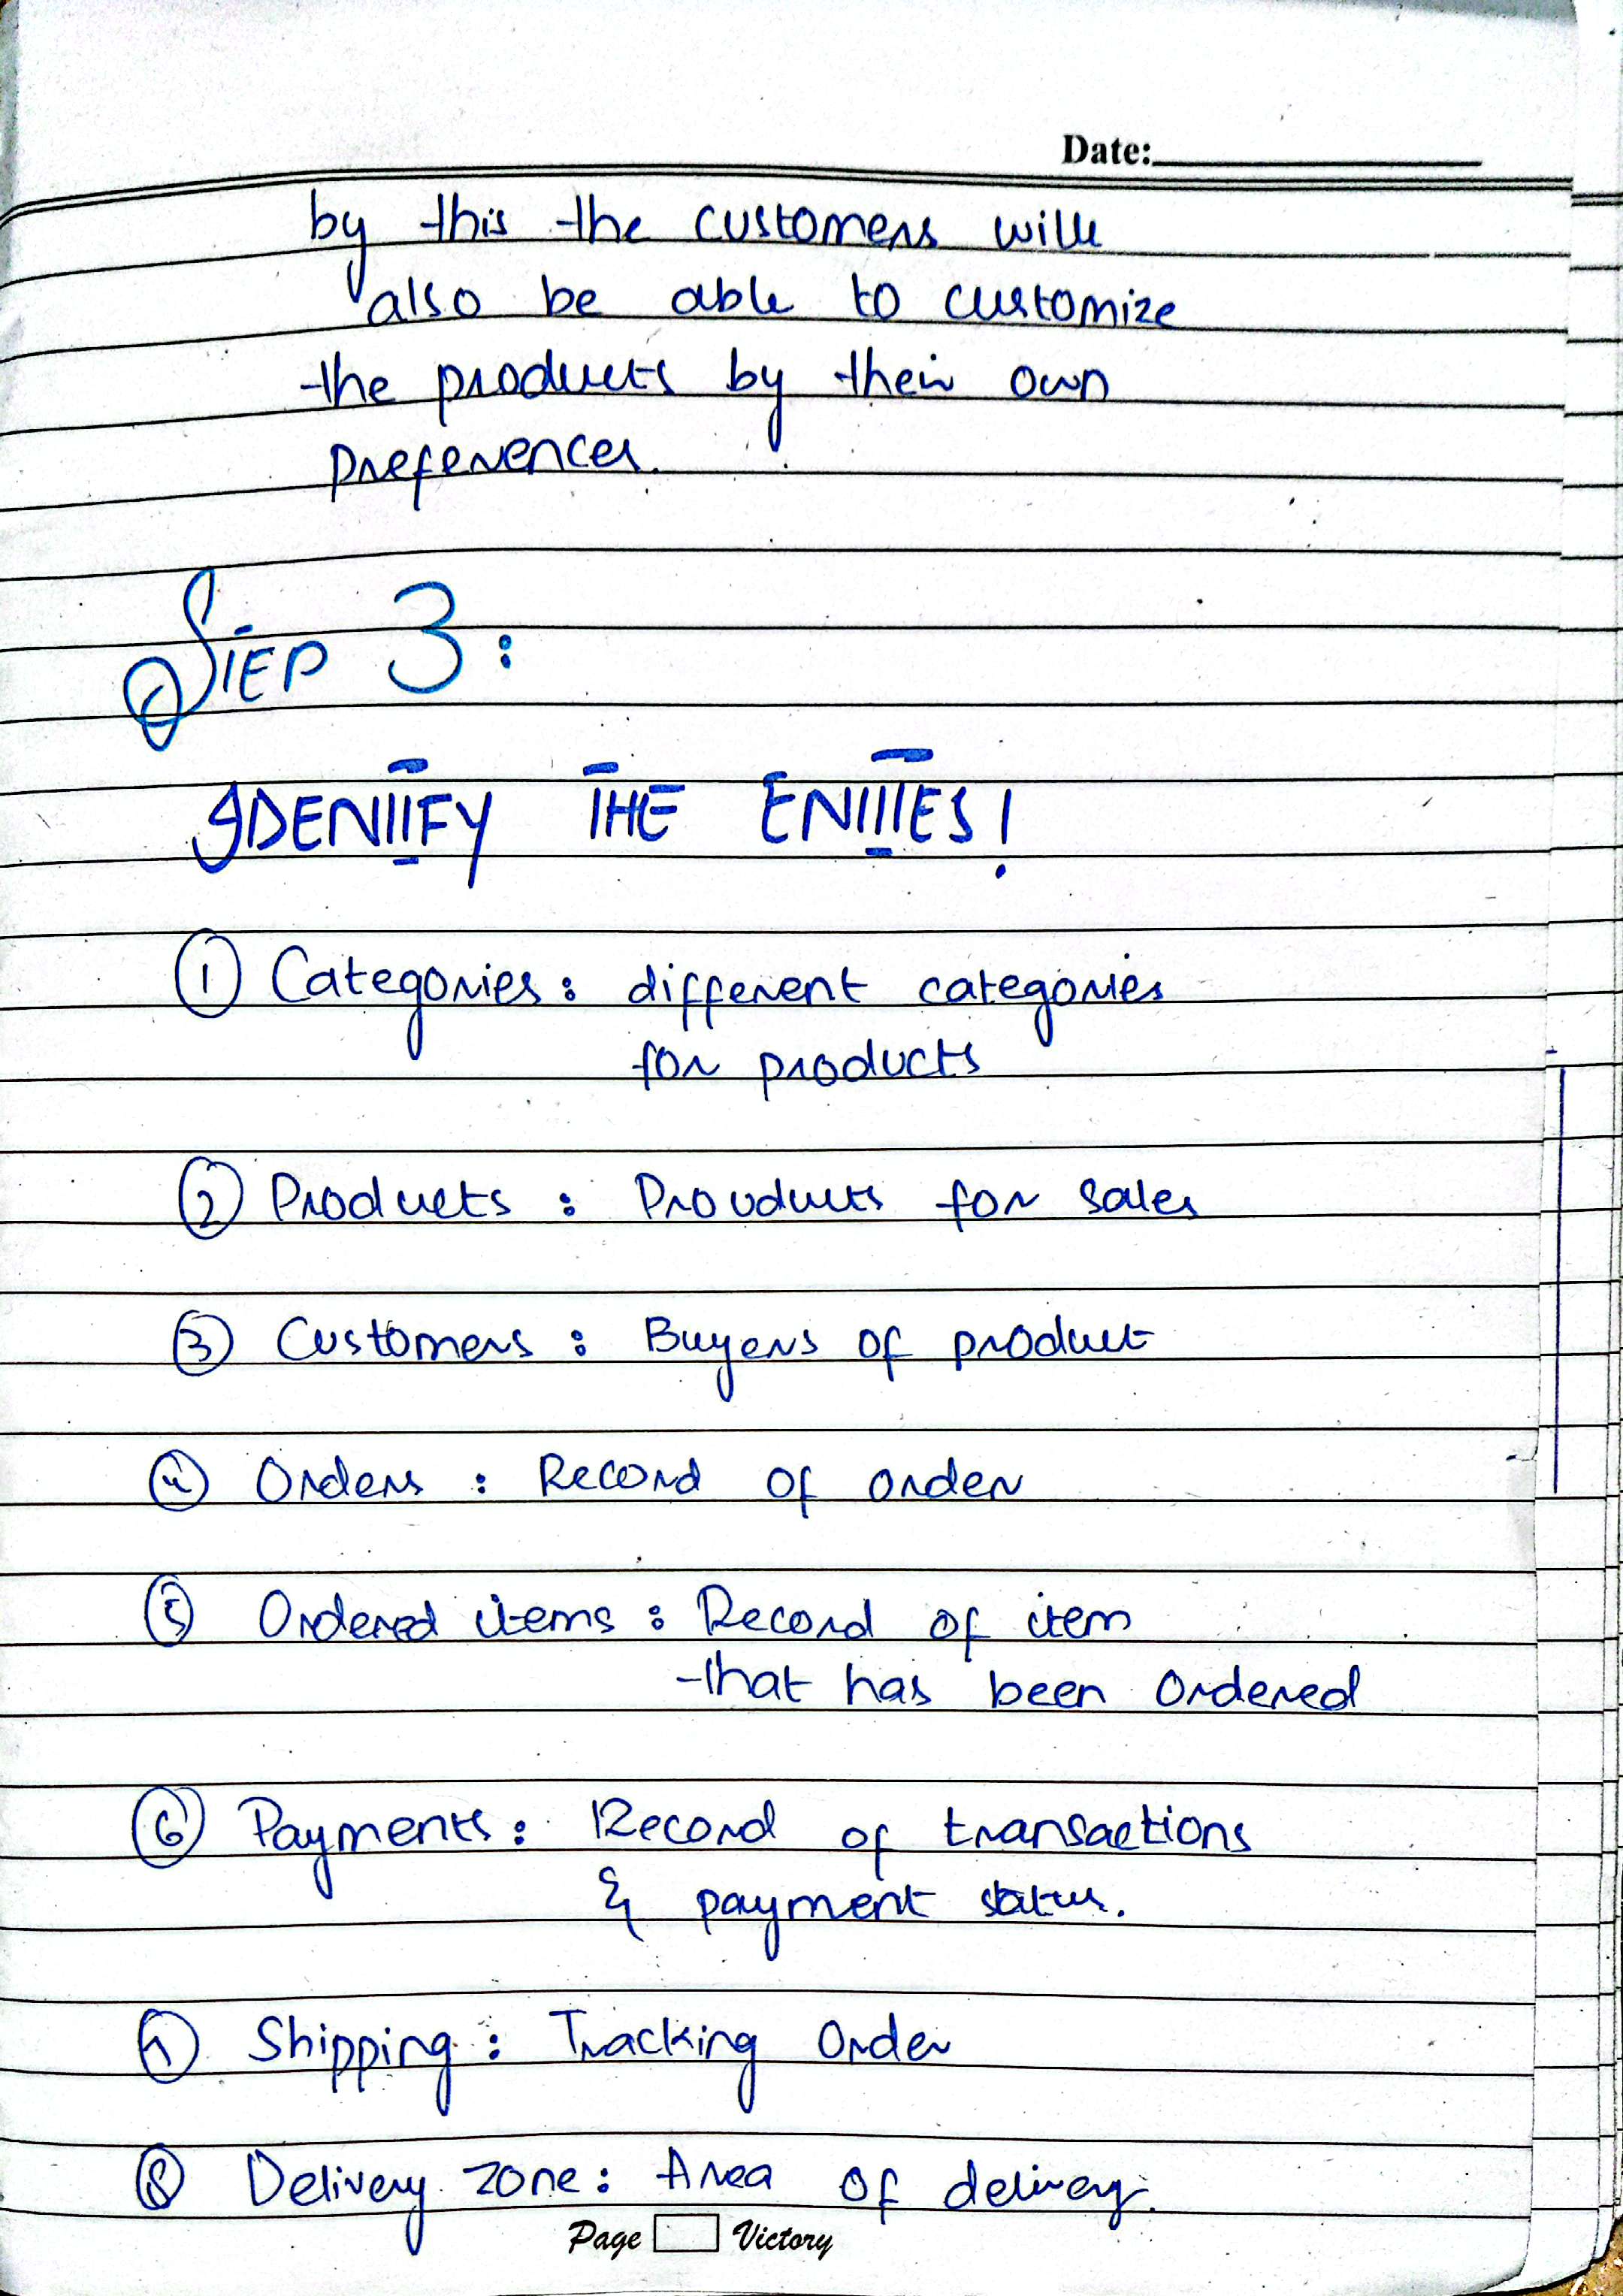 Date:
by this the customers will
also be able to customize
the products by their own
preferences.
STEP 3:
IDENTIFY THE ENTITIES!
① Categories: different categories
for products
② Products : Prouducts for sales
③ Customers : Buyers of product
④ Orders : Record of order
⑤ Ordered items : Record of item
that has been Ordered
⑥ Payments: Record of transactions
& payment status.
⑦ Shipping: Tracking Order
⑧ Delivery zone: Area of delivery.
Page Victory